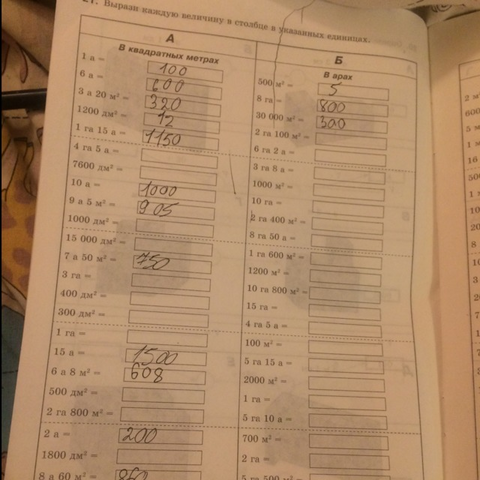 21. Вырази каждую величину в столбце в указанных единицах.
А
В квадратных метрах
1 а = 100
6 а = 600
3 а 20 м² = 320
1200 дм² = 12
1 га 15 а = 1150
4 га 5 а =
7600 дм² =
10 а = 1000
9 а 5 м² = 905
1000 дм² =
15 000 дм² =
7 а 50 м² = 750
3 га =
400 дм² =
300 дм² =
1 га =
15 а = 1500
6 а 8 м² = 608
500 дм² =
2 га 800 м² =
2 а = 200
1800 дм² =
8 а 60 м² = 860
Б
В арах
500 м² = 5
8 га = 800
30 000 м² = 300
2 га 100 м² =
6 га 2 а =
3 га 8 а =
1000 м² =
10 га =
2 га 400 м² =
8 га 50 а =
1 га 600 м² =
1200 м² =
10 га 800 м² =
15 га =
4 га 5 а =
100 м² =
5 га 15 а =
2000 м² =
1 га =
5 га 10 а =
700 м² =
2 га =
5 га 500 м² =